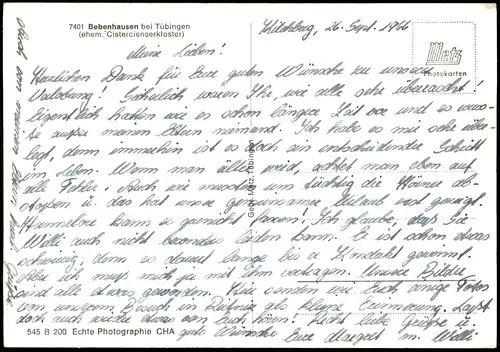 7401 Bebenhausen bei Tübingen
(ehem. Cistercienserkloster)
Kilchberg, 26. Sept. 1966
Metz
Photokarten
Meine Lieben!
Herzlichen Dank für Eure guten Wünsche zu unserer
Verlobung! Sicherlich waren Ihr, wie alle sehr überrascht!
Eigentlich hatten wir es schon längere Zeit vor und es wusste
außer meinen Eltern niemand. Ich habe es mir sehr über-
legt, denn immerhin ist es doch ein entscheidender Schritt
im Leben. Wenn man älter wird, achtet man eben auf
alle Fehler. Auch wir mussten uns tüchtig die Hörner ab-
stoßen u das hat unser gemeinsamer Urlaub gezeigt.
Hannelore kann es garnicht fassen! Ich glaube, dass Sie
Willi auch nicht besonders leiden kann. Er ist schon etwas
schwierig, denn es dauert lange bis er Kontakt gewinnt.
Aber ich muss mich ja mit Ihm vertragen. Unsere Bilder
sind alle etwas geworden. Wir senden Euch einige Fotos
von unserem Besuch in als kleine Erinnerung. Lasst
doch auch wieder etwas von Euch hören. Recht liebe Grüße u.
gute Wünsche Eure Margret u. Willi
Auch von meinen Eltern Grüße
Gebr. Metz, Tübingen
545 B 200 Echte Photographie CHA